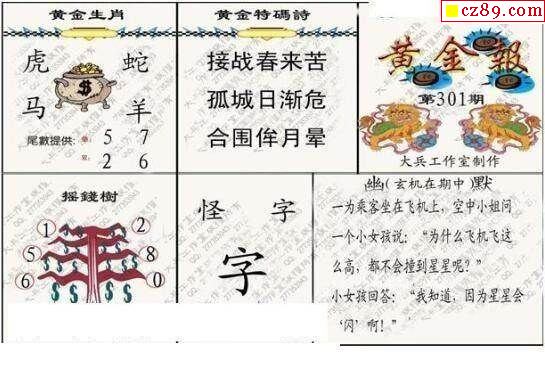 cz89.com
黄金生肖
虎
蛇
马
羊
尾數提供:
5 7
2 6
黄金特碼詩
接战春来苦
孤城日渐危
合围侔月晕
黄金報
第301期
大兵工作室制作
摇錢樹
1
2
5
8
6
0
怪 字
字
幽(玄机在期中)默
一为乘客坐在飞机上，空中小姐问
一个小女孩说：“为什么飞机飞这
么高，都不会撞到星星呢？”
小女孩回答：“我知道，因为星星会
‘闪’啊！”